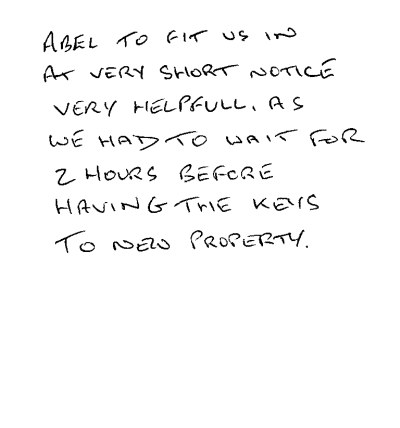 ABEL TO FIT US IN
AT VERY SHORT NOTICE
VERY HELPFULL, AS
WE HAD TO WAIT FOR
2 HOURS BEFORE
HAVING THE KEYS
TO NEW PROPERTY.